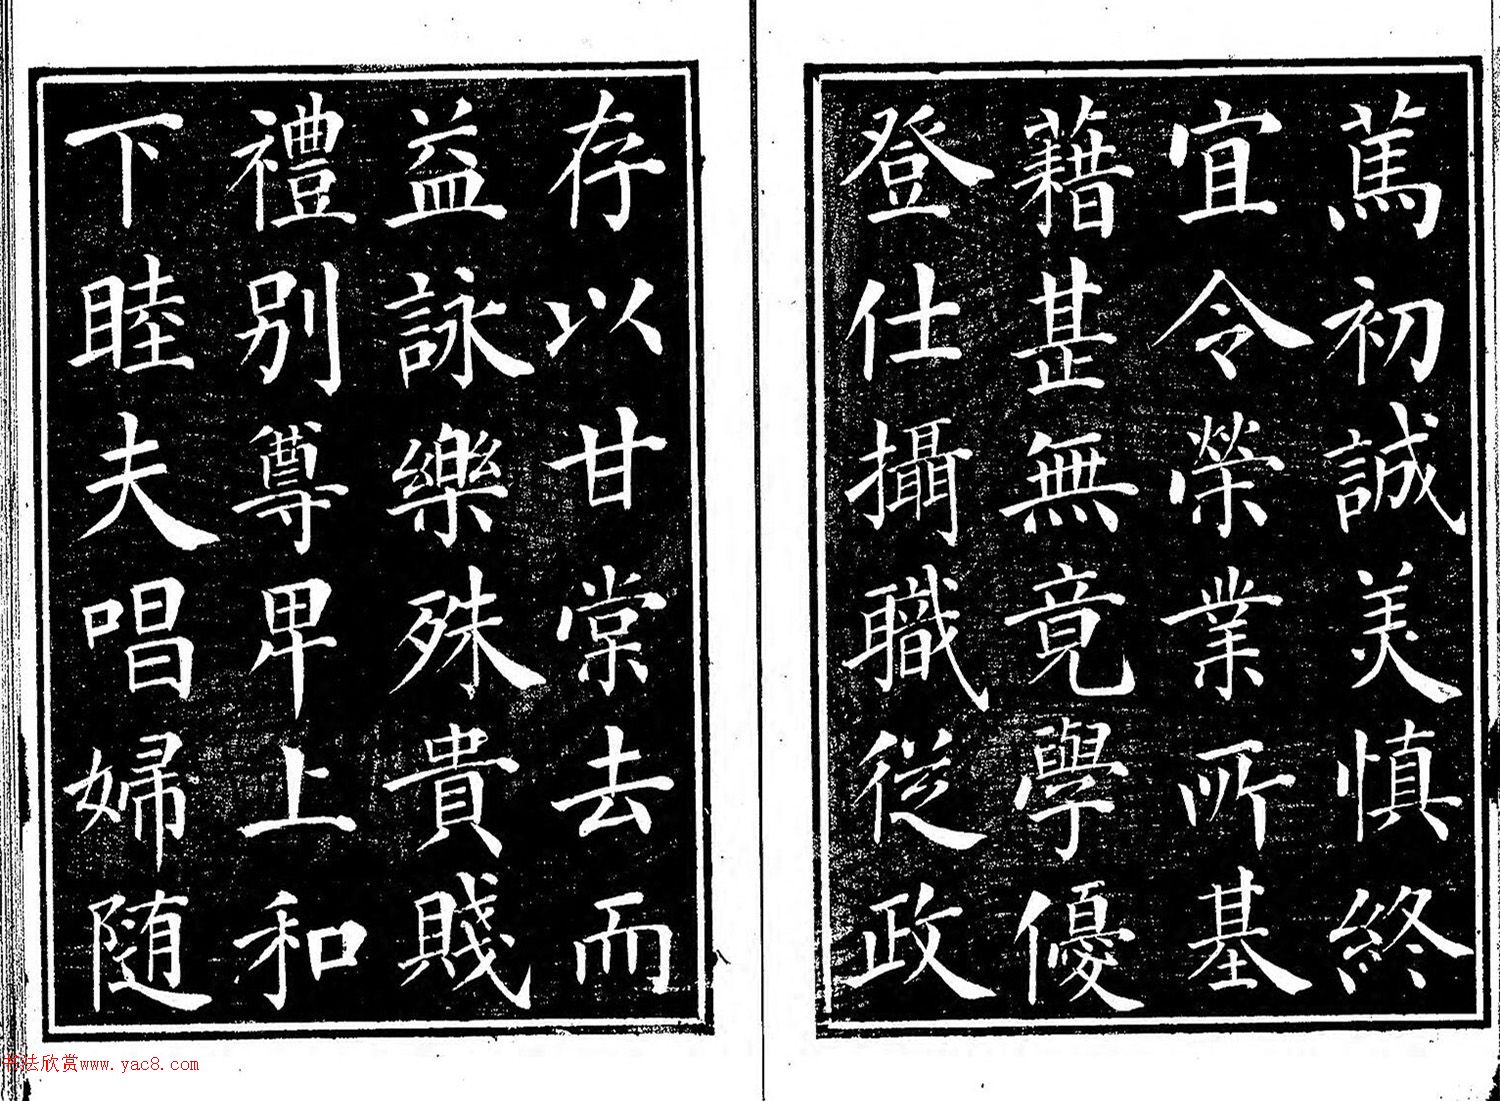 篤初誠美慎終
宜令榮業所基
藉甚無竟學優
登仕攝職從政
存以甘棠去而
益詠樂殊貴賤
禮別尊卑上和
下睦夫唱婦随
书法欣赏www.yac8.com